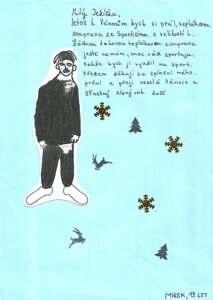 Milý Ježíšku,
letos k Vánocům bych si přál teplákovou
soupravu ze Sportisima s velikostí L.
Žádnou takovou teplákovou soupravu
ještě nemám, moc rád sportuju,
takže bych ji využil na sport.
Předem děkuji za splnění mého
přání a přeji veselé Vánoce a
šťastný Nový rok 2025.
MIREK, 13 LET